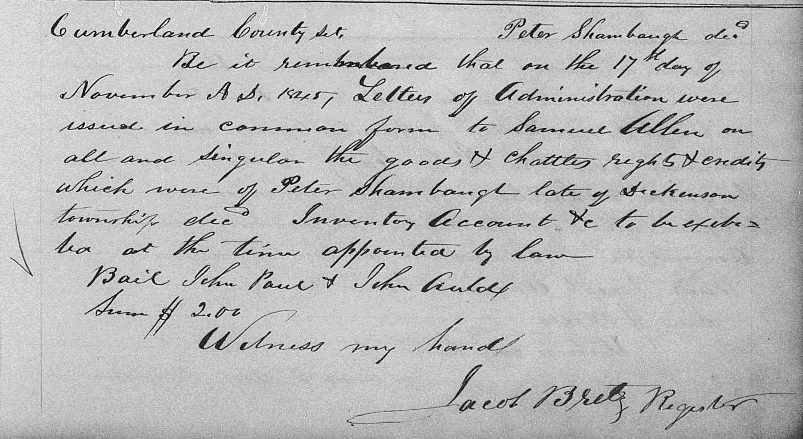 Cumberland County ss. Peter Shambaugh decd
Be it remembered that on the 17th day of
November A D. 1845, Letters of Administration were
issued in common form to Samuel Allen on
all and singular the goods & chattles rights & credits
which were of Peter Shambaugh late of Dickenson
township decd Inventory Account &c to be exibi=
ted at the time appointed by law
Bail John Paul & John Auld
Sum $ 200
Witness my hand
Jacob Bretz Register